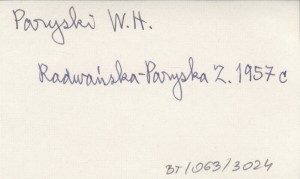 Paryski W.H.
Radwańska-Paryska Z. 1957c
BT/063/3024